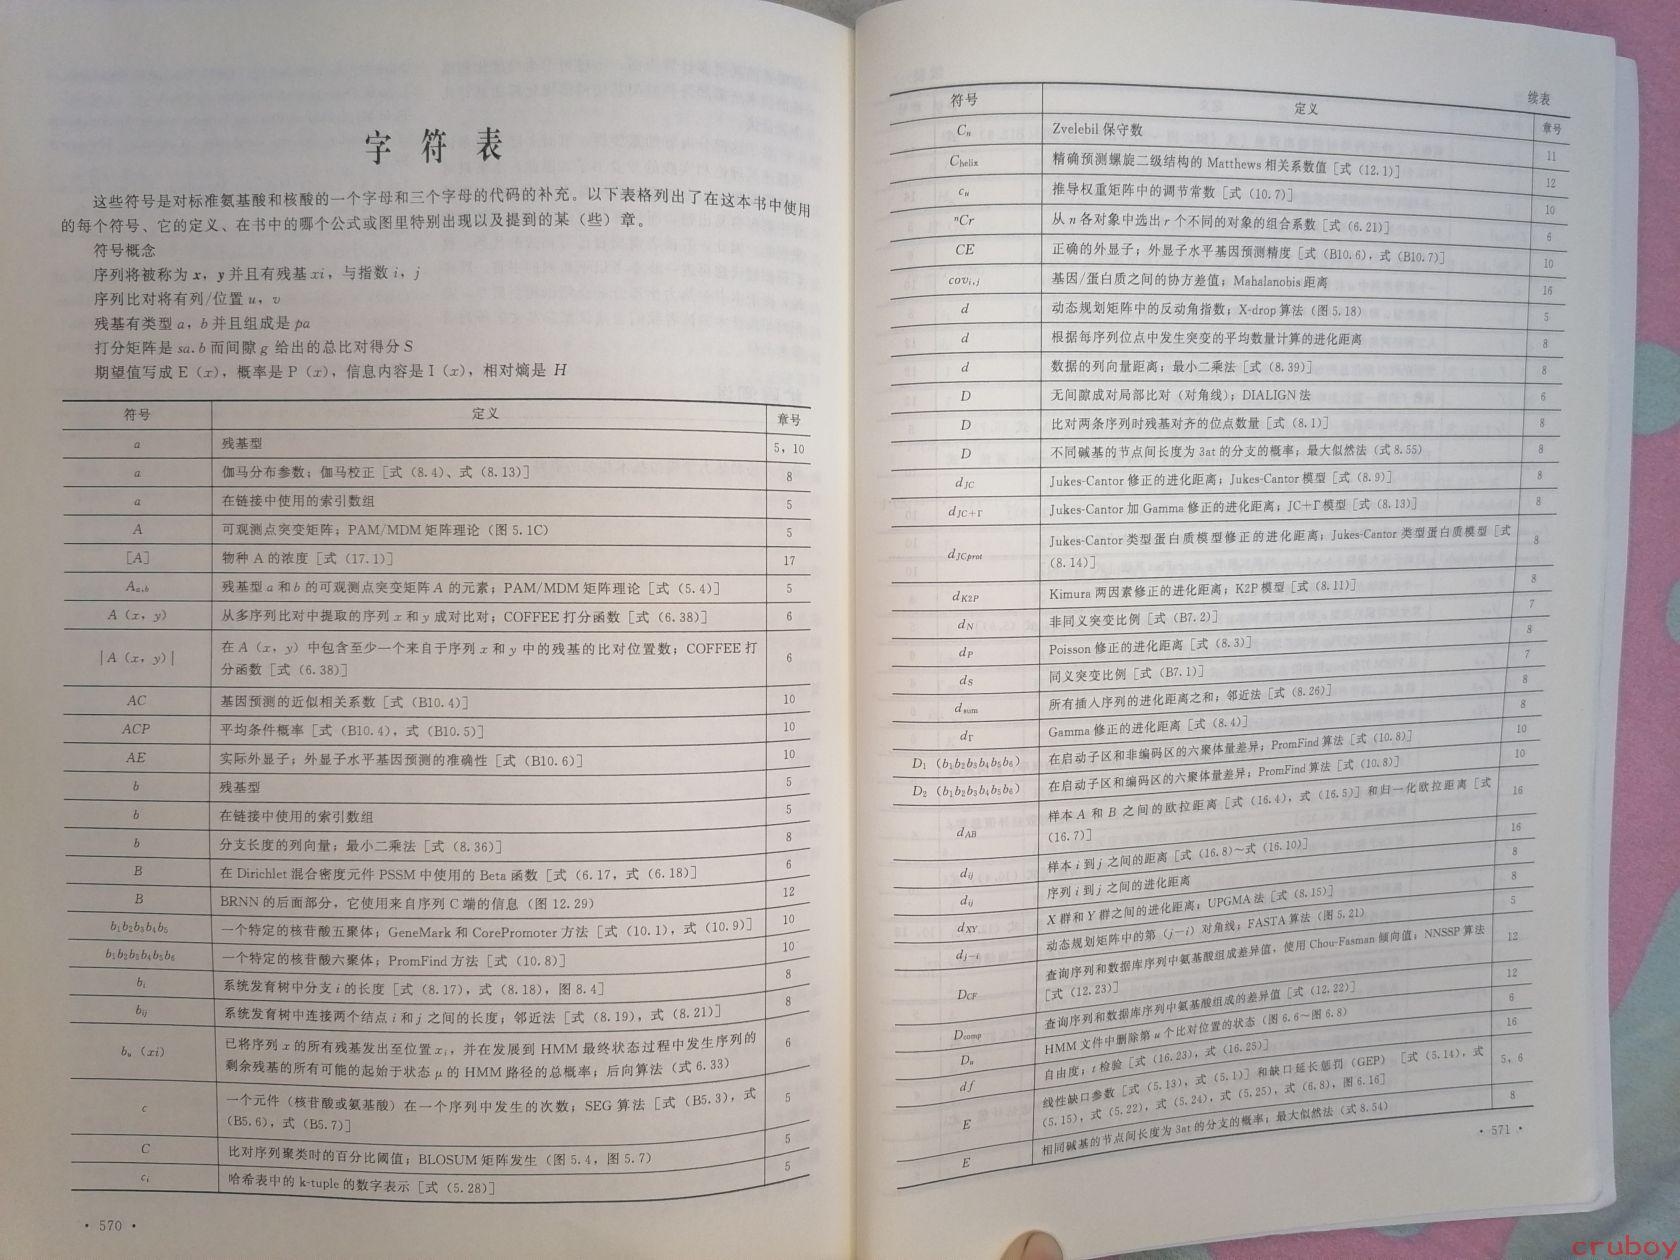 字 符 表
这些符号是对标准氨基酸和核酸的一个字母和三个字母的代码的补充。以下表格列出了在这本书中使用
的每个符号、它的定义、在书中的哪个公式或图里特别出现以及提到的某（些）章。
符号概念
序列将被称为 x，y 并且有残基 xi，与指数 i，j
序列比对将有列/位置 u，v
残基有类型 a，b 并且组成是 pa
打分矩阵是 sa.b 而间隙 g 给出的总比对得分 S
期望值写成 E（x），概率是 P（x），信息内容是 I（x），相对熵是 H
符号 定义 章号
a 残基型 5，10
a 伽马分布参数；伽马校正［式（8.4）、式（8.13）］ 8
a 在链接中使用的索引数组 5
A 可观测点突变矩阵；PAM/MDM 矩阵理论（图 5.1C） 5
［A］ 物种 A 的浓度［式（17.1）］ 17
Aa,b 残基型 a 和 b 的可观测点突变矩阵 A 的元素；PAM/MDM 矩阵理论［式（5.4）］ 5
A（x，y） 从多序列比对中提取的序列 x 和 y 成对比对；COFFEE 打分函数［式（6.38）］ 6
|A（x，y）| 在 A（x，y）中包含至少一个来自于序列 x 和 y 中的残基的比对位置数；COFFEE 打
分函数［式（6.38）］ 6
AC 基因预测的近似相关系数［式（B10.4）］ 10
ACP 平均条件概率［式（B10.4），式（B10.5）］ 10
AE 实际外显子；外显子水平基因预测的准确性［式（B10.6）］ 10
b 残基型 5
b 在链接中使用的索引数组 5
b 分支长度的列向量；最小二乘法［式（8.36）］ 8
B 在 Dirichlet 混合密度元件 PSSM 中使用的 Beta 函数［式（6.17，式（6.18）］ 6
B BRNN 的后面部分，它使用来自序列 C 端的信息（图 12.29） 12
b1b2b3b4b5 一个特定的核苷酸五聚体；GeneMark 和 CorePromoter 方法［式（10.1），式（10.9）］ 10
b1b2b3b4b5b6 一个特定的核苷酸六聚体；PromFind 方法［式（10.8）］ 10
bi 系统发育树中分支 i 的长度［式（8.17），式（8.18），图 8.4］ 8
bij 系统发育树中连接两个结点 i 和 j 之间的长度；邻近法［式（8.19），式（8.21）］ 8
bu（xi） 已将序列 x 的所有残基发出至位置 xi，并在发展到 HMM 最终状态过程中发生序列的
剩余残基的所有可能的起始于状态 μ 的 HMM 路径的总概率；后向算法（式 6.33） 6
c 一个元件（核苷酸或氨基酸）在一个序列中发生的次数；SEG 算法［式（B5.3），式
（B5.6），式（B5.7）］ 5
C 比对序列聚类时的百分比阈值；BLOSUM 矩阵发生（图 5.4，图 5.7） 5
ci 哈希表中的 k-tuple 的数字表示［式（5.28）］ 5
· 570 ·
续表
符号 定义 章号
Cn Zvelebil 保守数 11
Chelix 精确预测螺旋二级结构的 Matthews 相关系数值［式（12.1）］ 12
cu 推导权重矩阵中的调节常数［式（10.7）］ 10
nCr 从 n 各对象中选出 r 个不同的对象的组合系数［式（6.21）］ 6
CE 正确的外显子；外显子水平基因预测精度［式（B10.6），式（B10.7）］ 10
covi,j 基因/蛋白质之间的协方差值；Mahalanobis 距离 16
d 动态规划矩阵中的反动角指数；X-drop 算法（图 5.18） 5
d 根据每序列位点中发生突变的平均数量计算的进化距离 8
d 数据的列向量距离；最小二乘法［式（8.39）］ 8
D 无间隙成对局部比对（对角线）；DIALIGN 法 6
D 比对两条序列时残基对齐的位点数量［式（8.1）］ 8
D 不同碱基的节点间长度为 3at 的分支的概率；最大似然法（式 8.55） 8
dJC Jukes-Cantor 修正的进化距离；Jukes-Cantor 模型［式（8.9）］ 8
dJC+Γ Jukes-Cantor 加 Gamma 修正的进化距离；JC+Γ 模型［式（8.13）］ 8
dJCprot Jukes-Cantor 类型蛋白质模型修正的进化距离；Jukes-Cantor 类型蛋白质模型［式
（8.14）］ 8
dK2P Kimura 两因素修正的进化距离；K2P 模型［式（8.11）］ 8
dN 非同义突变比例［式（B7.2）］ 7
dP Poisson 修正的进化距离［式（8.3）］ 8
dS 同义突变比例［式（B7.1）］ 7
dsum 所有插入序列的进化距离之和；邻近法［式（8.26）］ 8
dΓ Gamma 修正的进化距离［式（8.4）］ 8
D1（b1b2b3b4b5b6） 在启动子区和非编码区的六聚体量差异；PromFind 算法［式（10.8）］ 10
D2（b1b2b3b4b5b6） 在启动子区和编码区的六聚体量差异；PromFind 算法［式（10.8）］ 10
dAB 样本 A 和 B 之间的欧拉距离［式（16.4），式（16.5）］和归一化欧拉距离［式
（16.7）］ 16
dij 样本 i 到 j 之间的距离［式（16.8）～式（16.10）］ 16
dij 序列 i 到 j 之间的进化距离 8
dXY X 群和 Y 群之间的进化距离；UPGMA 法［式（8.15）］ 8
dj−i 动态规划矩阵中的第（j−i）对角线；FASTA 算法（图 5.21） 5
DCF 查询序列和数据库序列中氨基酸组成差异值，使用 Chou-Fasman 倾向值；NNSSP 算法
［式（12.23）］ 12
Dcomp 查询序列和数据库序列中氨基酸组成的差异值［式（12.22）］ 12
Du HMM 文件中删除第 u 个比对位置的状态（图 6.6～图 6.8） 6
df 自由度；t 检验［式（16.23），式（16.25）］ 16
E 线性缺口参数［式（5.13），式（5.1）］和缺口延长惩罚（GEP）［式（5.14），式
（5.15），式（5.22），式（5.24），式（5.25），式（6.8），图 6.16］ 5，6
E 相同碱基的节点间长度为 3at 的分支的概率；最大似然法（式 8.54） 8
· 571 ·
cruboy